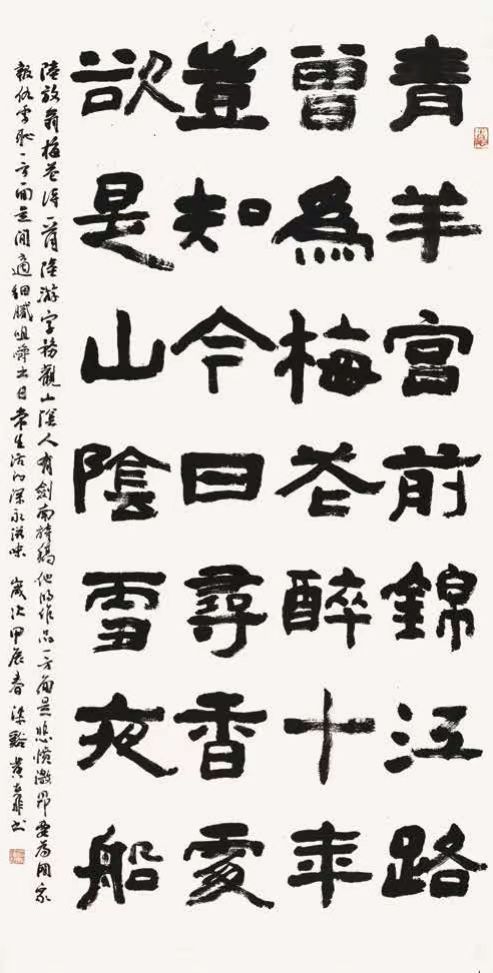 青羊宮前錦江路
曾為梅花醉十年
豈知今日尋香處
欲是山陰雪夜船
陸放翁梅花詩一首陸游字務觀山陰人有劍南詩稿他的作品一方面是悲憤激昂要為國家
報仇雪恥一方面是閒適細膩咀嚼出日常生活的深永滋味 歲次甲辰春 梁谿黃書